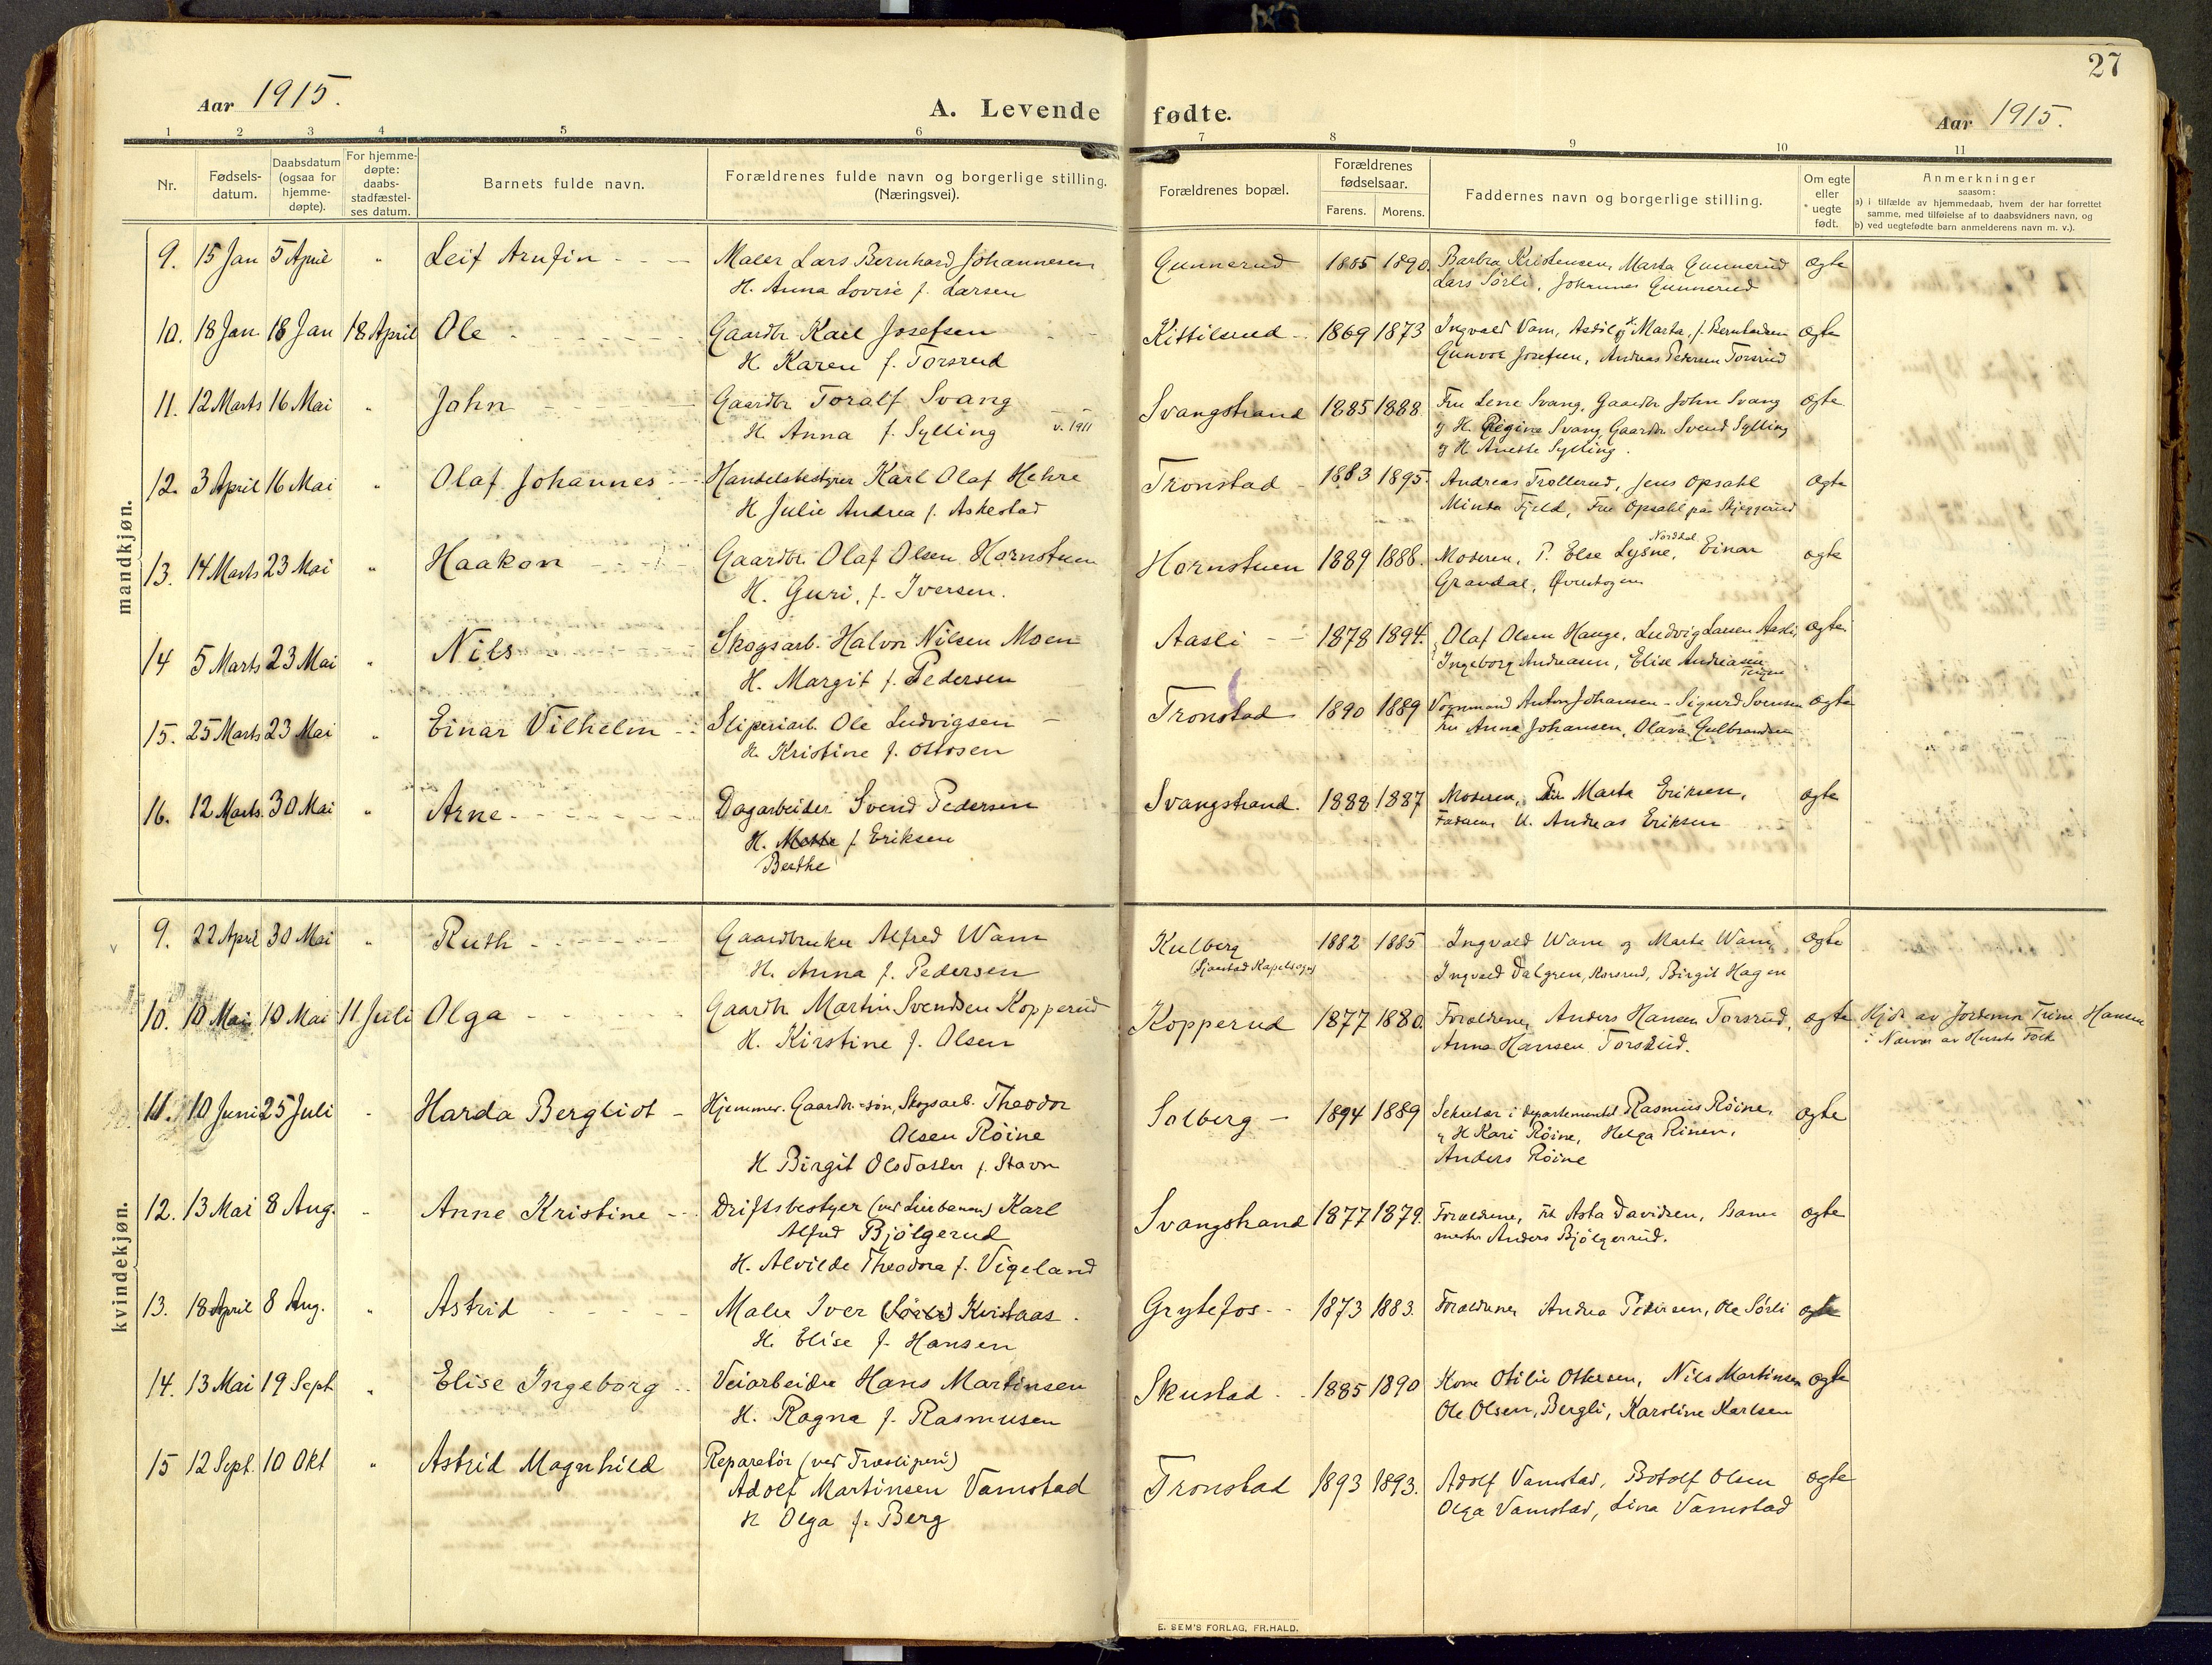 27
Aar 1915.
A. Levende fødte.
Aar 1915.
1 2 3 4 5 6 7 8 9 10 11
Nr.
Fødsels-
datum.
Daabsdatum
(ogsaa for
hjemme-
døpte).
For hjemme-
døpte:
daabs-
stadfæstel-
ses datum.
Barnets fulde navn.
Forældrenes fulde navn og borgerlige stilling.
(Næringsvei).
Forældrenes bopæl.
Forældrenes
fødselsaar.
Farens. Morens.
Faddernes navn og borgerlige stilling.
Om egte
eller
* uegte
født.
Anmerkninger
saasom:
a) i tilfælde av hjemmedaab, hvem der har forrettet
samme, med tilføielse af to daabsvidners navn, og
b) ved uegtefødte barn anmelderens navn m. v.).
mandkjøn.
9. 15 Jan 5 April " Leif Arnfin Maler Lars Bernhard Johannesen Gunnerud 1885 1890. Barbra Kristensen, Marta Gunnerud ægte
H. Anna Lovise f. Larsen Lars Sørli, Johannes Gunnerud
10. 18 Jan. 18 Jan 18 April Ole Gaardbr Karl Josefsen Kittilsrud 1869 1873 Ingvald Vam, Marta, f. Berntsen ægte
H. Karen f. Torsrud Gunvor Josefsen, Andreas Pedersen Torsrud
11. 12 Marts 16 Mai " John Gaardbr Toralf Svang Svangstrand 1885 1888. Fru Lene Svang, Gaardbr John Svang ægte
H. Anna f. Sylling v. 1911 og H. Regine Svang Gaardbr. Svend Sylling
og H. Anette Sylling.
12. 3 April 16 Mai " Olaf Johannes Handelsbestyrer Karl Olaf Hehre Tronstad 1883 1895. Andreas Trollerud, Jens Opsahl ægte
H Julie Andrea f. Askestad Minda Fjeld, Fru Opsahl paa Skjeggerud
13. 14 Marts 23 Mai " Haakon Gaardbr. Olaf Olsen Hornstuen Hornstuen 1889 1888. Moderen, P. Else Lysne, Nordal, Einar ægte
H. Guri, f. Iversen. Gravdal, Øverskogen
14 5 Marts 23 Mai " Nils Skogsarb. Halvor Nilsen Moen Aasli 1878 1894. Olaf Olsen Hauge, Ludvig Larsen Aasli, ægte
H. Margit f. Pedersen Ingeborg Andreasen, Elise Andreasen
15. 25 Marts 23 Mai " Einar Vilhelm Sliperiarb. Ole Ludvigsen Tronstad 1890 1889 Vognmand Anton Johansen - Sigurd Svensen ægte
H. Kristine f. Ottosen Fru Anna Johansen, Olava Gulbrandsen
16. 12 Marts. 30 Mai " Arne Dagarbeider Svend Pedersen Svangstrand. 1888 1887 Moderen, Marta Eriksen, ægte
H. Mette f. Eriksen Faderen, U. Andreas Eriksen
Berthe
kvindekjøn.
v 9. 22 April 30 Mai " Ruth Gaardbruker Alfred Wam Kulberg 1882 1885 Ingvald Wam og Marta Wam, ægte
H. Anna f. Pedersen (Sjaastad Kapelsogn) Ingvald Dalgren, Korsrud, Birgit Hagen
10. 10 Mai 10 Mai 11 Juli Olga Gaardbr Martin Svendsen Kopperud Kopperud 1877 1880. Forældrene, Anders Hansen Torsrud, ægte Hjdt av Jordemor Trine Hansen
H. Kirstine f. Olsen Anna Hansen Torsrud. i Nærvær av Husets Folk
11. 10 Juni 25 Juli Harda Bergliot Hjemmev. Gaardbr.-søn, Skogsarb. Theodor Solberg 1894 1889 Sekretær i departementet Rasmus Röine, ægte
Olsen Röine og H Kari Röine, Helga Rinen,
H Birgit Olsdatter f. Stavn Anders Röine
12. 13 Mai 8 Aug. Anne Kristine Driftsbestyrer (ved Lierbanen) Karl Svangstrand 1877 1879. Forældrene, Frk Asta Davidsen, Bane- ægte
Alfred Bjölgerud mester Anders Bjölgerrud.
H. Alvilde Theodora f. Vigeland
13. 18 April 8 Aug. " Astrid Maler Iver (Sørli) Kvistaas Grytefos 1873 1883. Forældrene Andrea Pedersen, Ole Sörli ægte
H. Elise f. Hansen
14. 13 Mai 19 Sept " Elise Ingeborg Veiarbeider Hans Martinsen Skustad 1885 1890 Kone Otilie Ottersen, Nils Martinsen ægte
H. Ragna f. Rasmusen Ole Olsen, Bergli, Karoline Karlsen
15 12 Sept. 10 Okt " Astrid Magnhild Reparatör (ved Træsliperi) Tronstad 1893 1893. Adolf Vamstad, Botolf Olsen ægte
Adolf Martinsen Vamstad Olga Vamstad, Lina Vamstad
H Olga f. Berg
E. SEM'S FORLAG, FR.HALD.